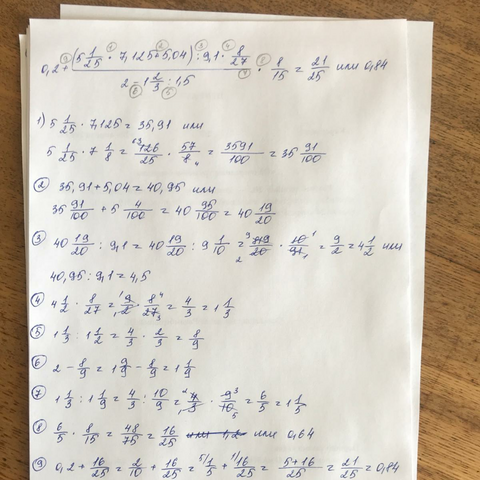 0,2 + (5 1/25 · 7,125 + 5,04) : 9,1 · 8/27 / 2 - 1 2/3 : 1,5 · 8/15 = 21/25 или 0,84
1) 5 1/25 · 7,125 = 35,91 или
5 1/25 · 7 1/8 = 126/25 · 57/8 = 3591/100 = 35 91/100
2 35,91 + 5,04 = 40,95 или
35 91/100 + 5 4/100 = 40 95/100 = 40 19/20
3 40 19/20 : 9,1 = 40 19/20 : 9 1/10 = 819/20 · 10/91 = 9/2 = 4 1/2 или
40,95 : 9,1 = 4,5
4 4 1/2 · 8/27 = 9/2 · 8/27 = 4/3 = 1 1/3
5 1 1/3 : 1 1/2 = 4/3 · 2/3 = 8/9
6 2 - 8/9 = 1 9/9 - 8/9 = 1 1/9
7 1 1/3 : 1 1/9 = 4/3 : 10/9 = 4/3 · 9/10 = 6/5 = 1 1/5
8 6/5 · 8/15 = 48/75 = 16/25 или 0,64
9 0,2 + 16/25 = 2/10 + 16/25 = 1/5 + 16/25 = 5+16/25 = 21/25 = 0,84